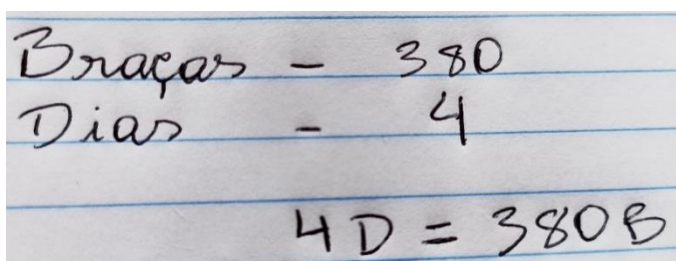 Braças - 380
Dias - 4
4D = 380B